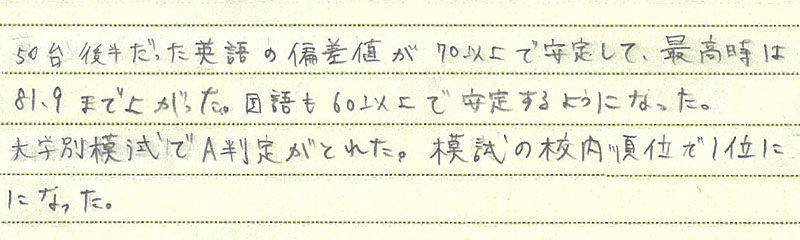 50台後半だった英語の偏差値が70以上で安定して、最高時は
81.9まで上がった。国語も60以上で安定するようになった。
大学別模試でA判定がとれた。模試の校内順位で1位に
になった。